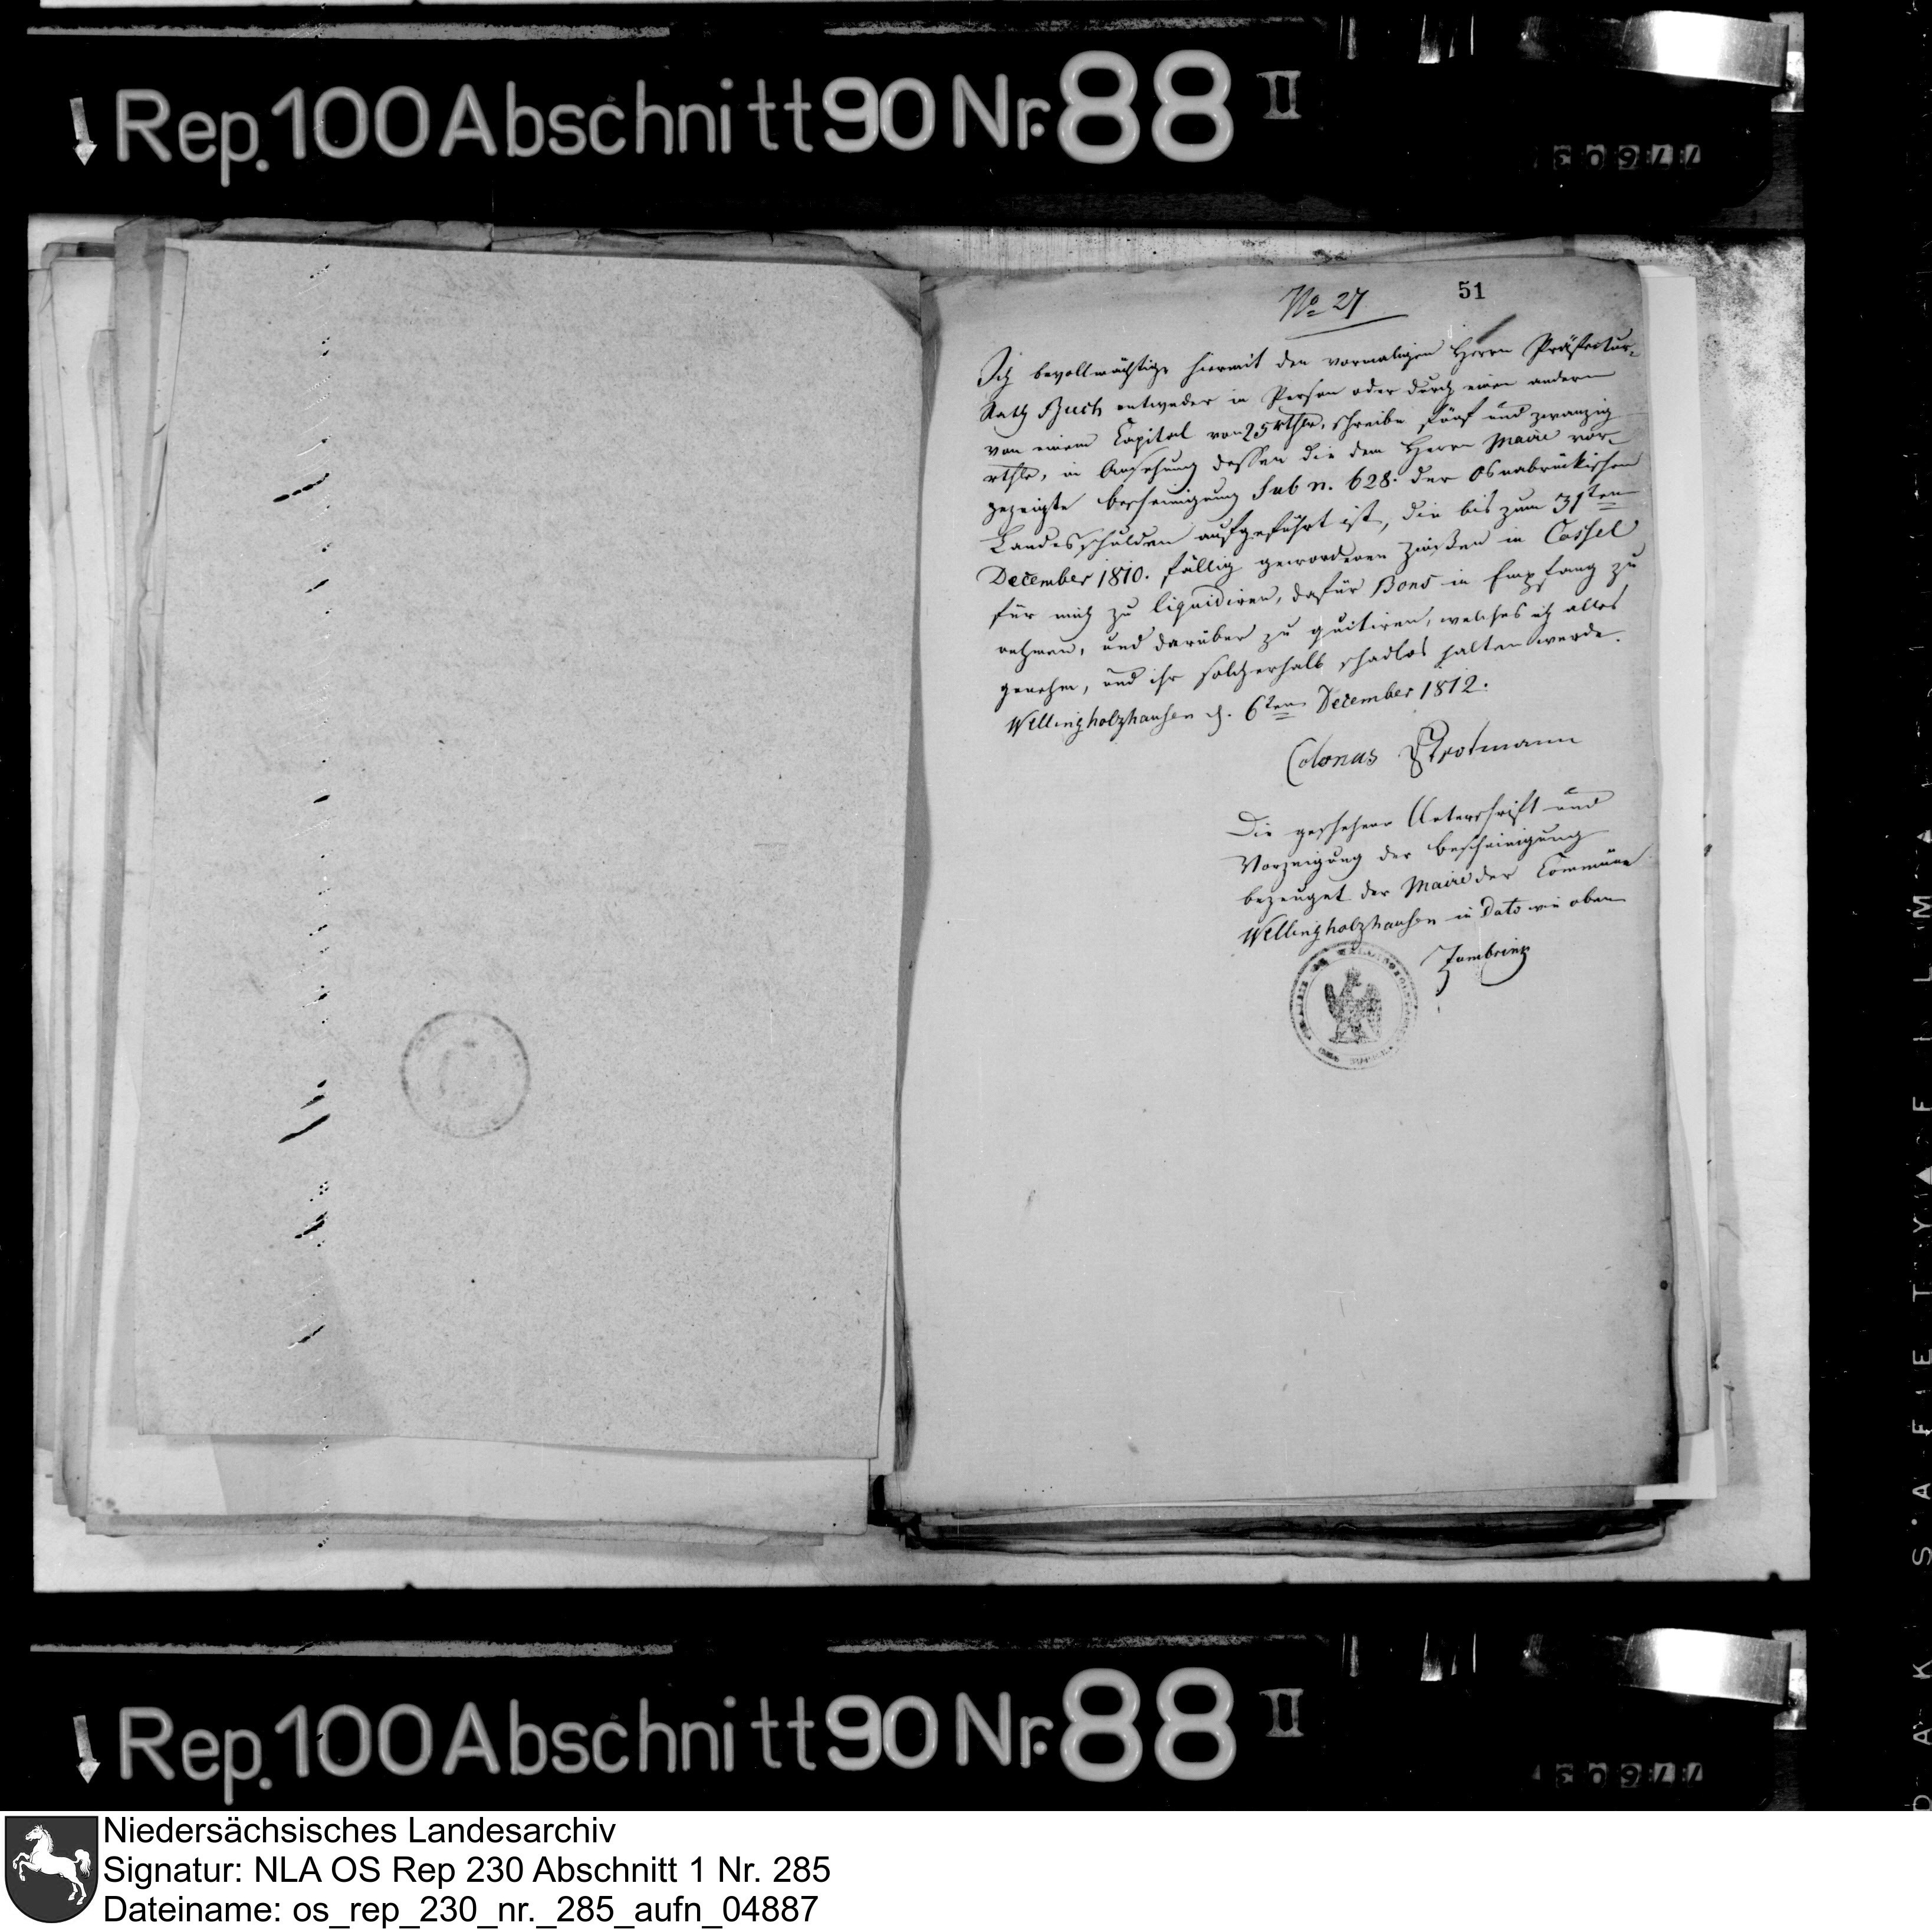 Rep. 100 Abschnitt 90 Nr. 88 II
No 27
51
Ich bevollmächtige hiermit den vormaligen Herrn Präfectur-
Rath Buch entweder in Person oder durch einen andern
von einem Capital von 25 rthlr, schreibe fünf und zwanzig
rthlr, in Ansehung dessen die dem Herrn Maire vor-
gezeigte Bescheinigung sub n. 628. der Osnabrückischen
Landesschulden aufgeführt ist, die bis zum 31ten
December 1810. fällig gewordenen Zinßen in Cassel
für mich zu liquidiren, dafür Bons in Empfang zu
nehmen, und darüber zu quitiren, welches ich alles
genehm, und ihr solcherhalb schadlos halten werde.
Wellingholzhausen d. 6ten December 1812.
Colonus Strotmann
Die geschehene Unterschrift und
Vorzeigung der Bescheinigung
bezeuget der Maire der Commüne
Wellingholzhausen in Dato wie oben
Zumbrink
Rep. 100 Abschnitt 90 Nr. 88 II
Niedersächsisches Landesarchiv
Signatur: NLA OS Rep 230 Abschnitt 1 Nr. 285
Dateiname: os_rep_230_nr._285_aufn_04887